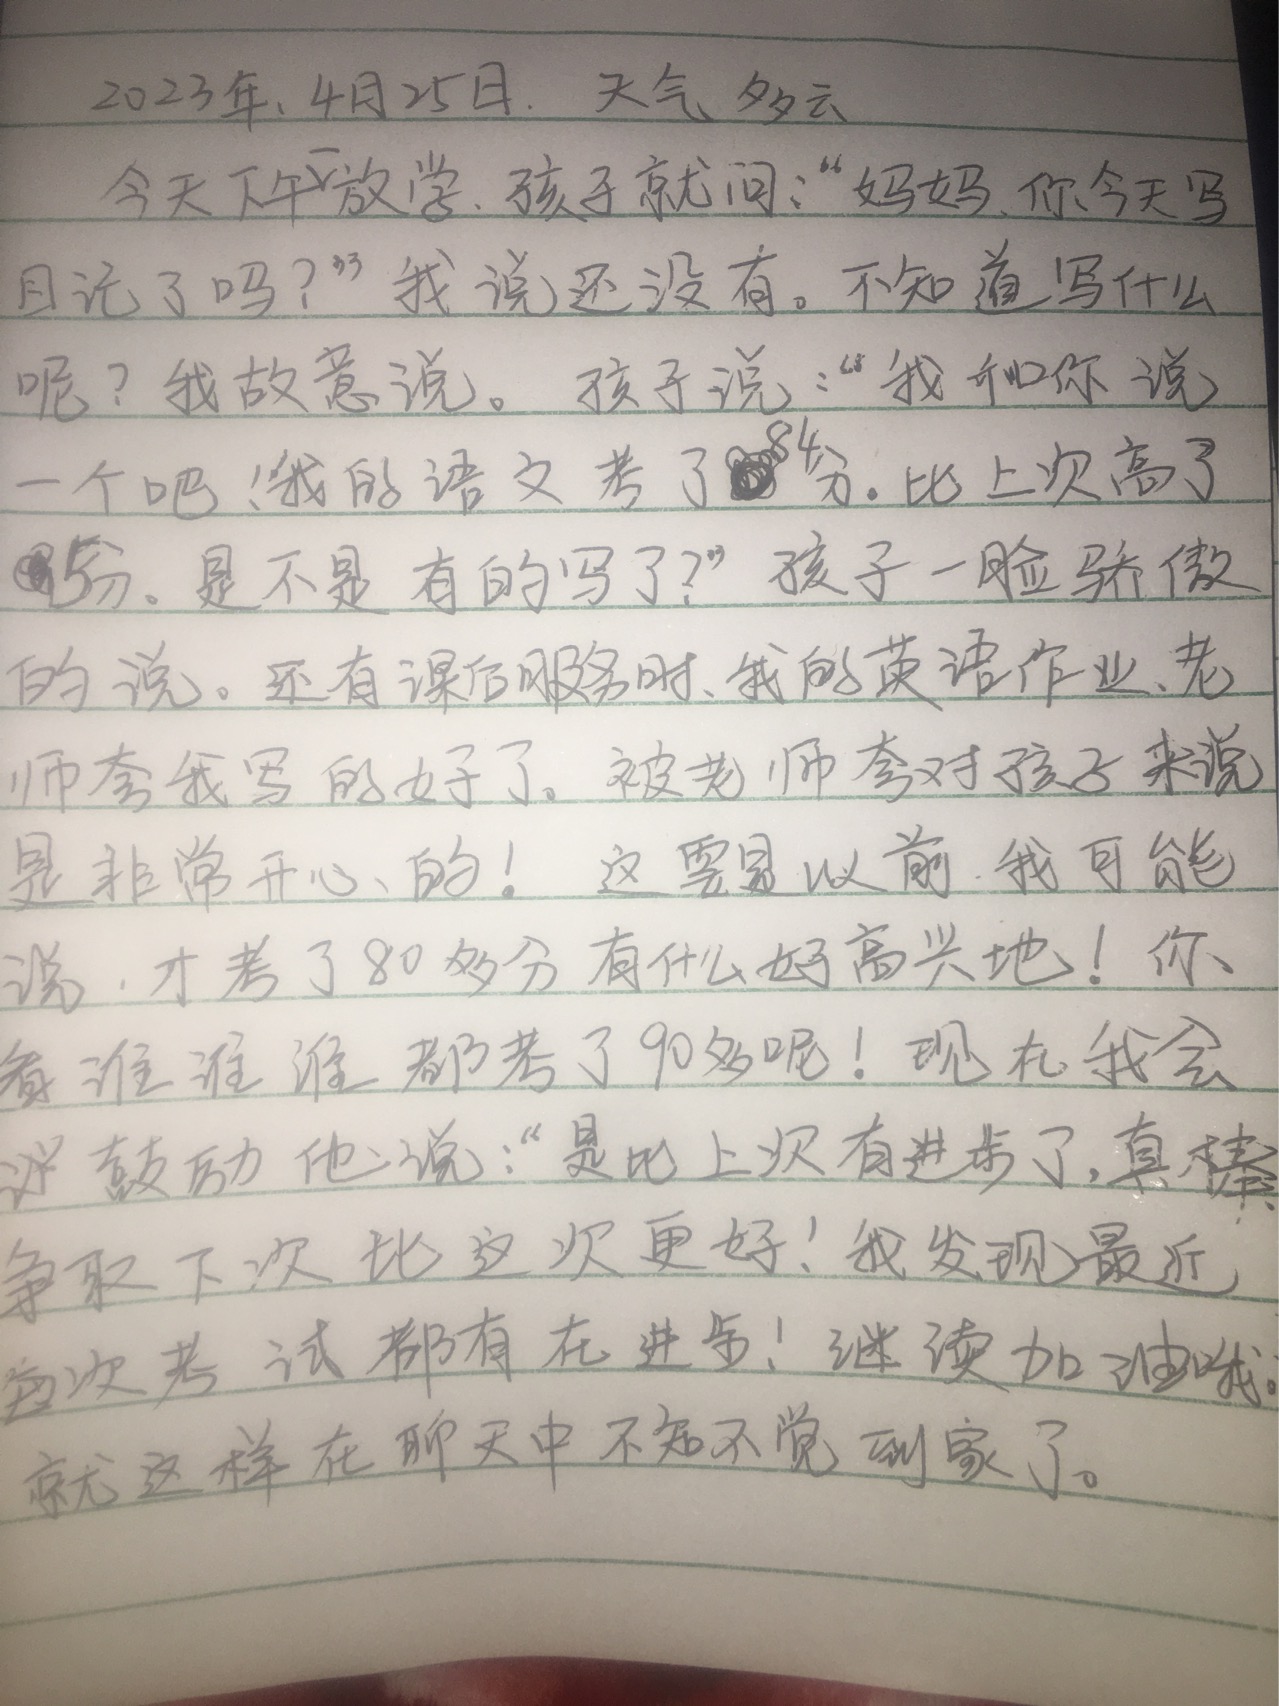 2023年、4月25日. 天气 多云
今天下午一放学、孩子就问：“妈妈、你今天写
日记了吗？”我说还没有。不知道写什么
呢？我故意说。孩子说：“我和你说
一个吧！我的语文考了84分。比上次高了
5分。是不是有的写了？”孩子一脸骄傲
的说。还有课后服务时、我的英语作业、老
师夸我写的好了。被老师夸对孩子来说
是非常开心的！这要是以前.我可能
说，才考了80多分有什么好高兴地！你
看谁谁谁都考了90多呢！现在我会
鼓励他说：“是比上次有进步了，真棒
争取下次比这次更好！我发现最近
每次考试都有在进步！继续加油哦。
就这样在聊天中不知不觉到家了。